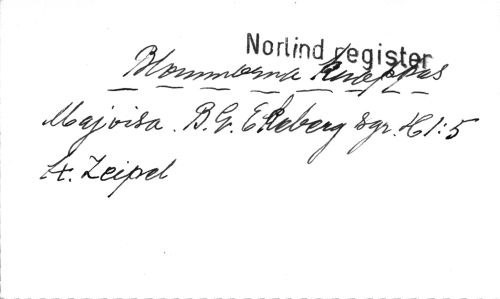 Norlind register
Blommorna knoppas
Majvisa. B.G. Ekeberg Sgr. H 1:5
H. Zeipel